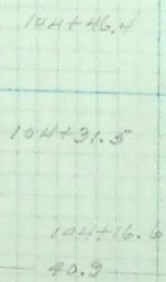 104+46.4
104+31.5
104+16.6
40.9